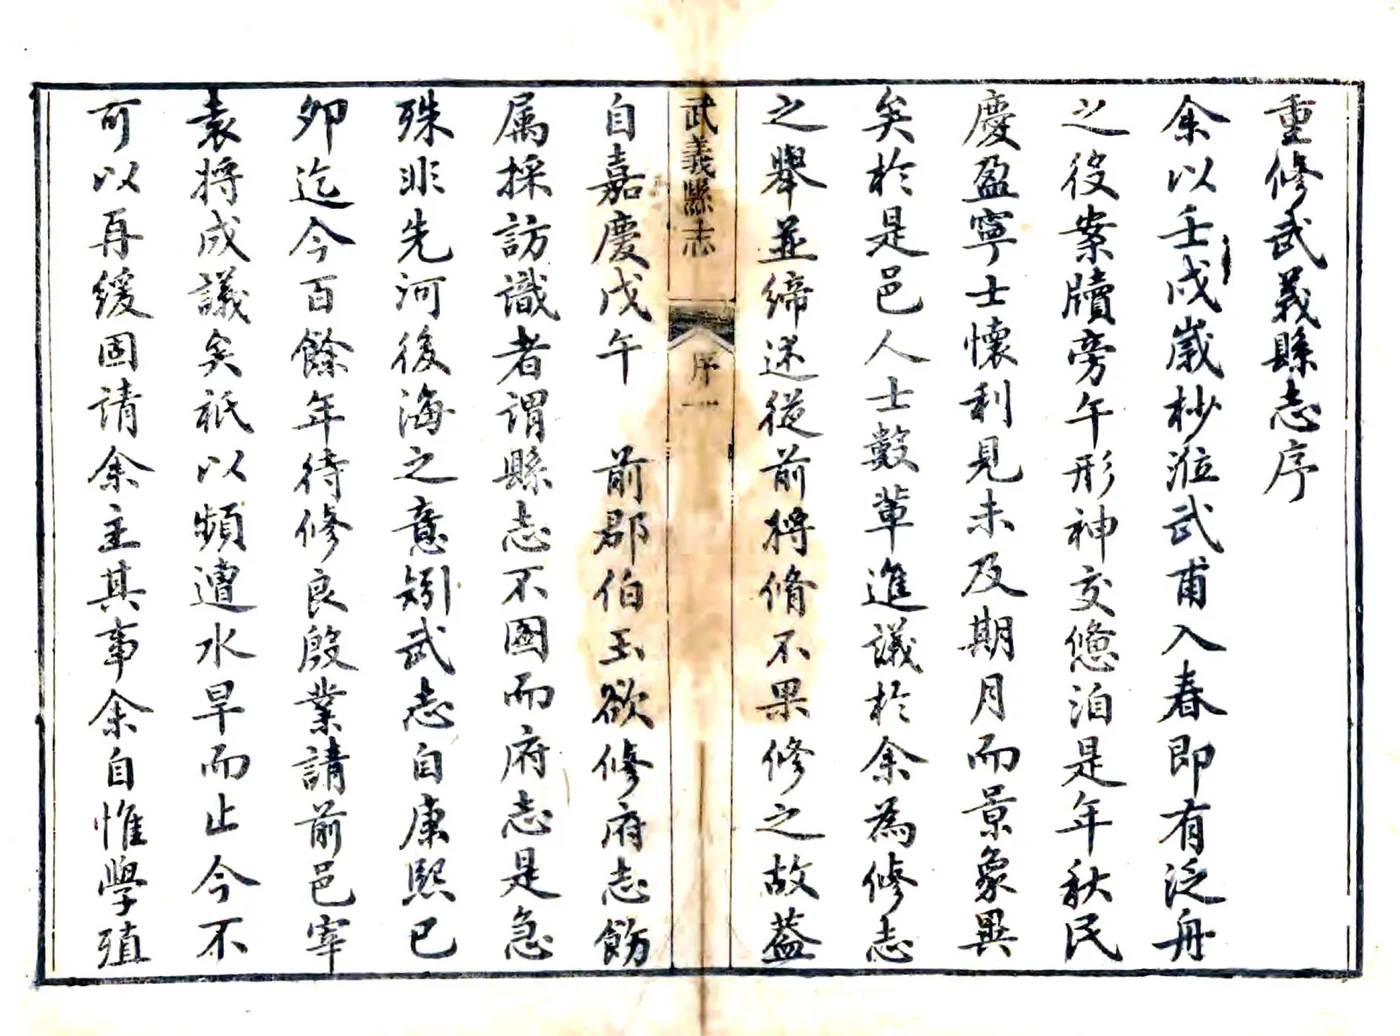 重修武義縣志序
余以壬戌嵗杪涖武甫入春即有泛舟
之役案牘旁午形神交憊洎是年秋民
慶盈寧士懷利見未及期月而景象異
矣於是邑人士數輩進議於余為修志
之舉並締述從前將脩不果修之故葢
武義縣志
序
一
自嘉慶戊午　前郡伯玉欲修府志飭
属採訪識者謂縣志不圖而府志是急
殊非先河後海之意矧武志自康熙己
卯迄今百餘年待修良殷業請前邑宰
袁将成議矣祇以頻遭水旱而止今不
可以再緩固請余主其事余自惟學殖